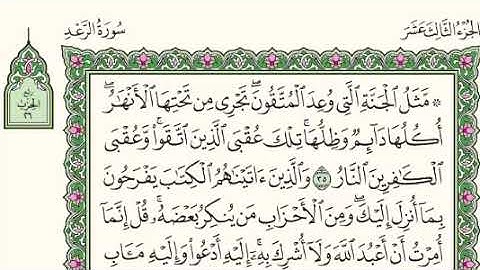 الجُزْءُ الثَّالِثَ عَشَرَ
سُورَةُ الرَّعْدِ
رُبْع
الحِزْب
٢٦
۞ مَّثَلُ ٱلْجَنَّةِ ٱلَّتِي وُعِدَ ٱلْمُتَّقُونَۖ تَجْرِي مِن تَحْتِهَا ٱلْأَنْهَٰرُۖ
أُكُلُهَا دَآئِمٞ وَظِلُّهَاۚ تِلْكَ عُقْبَى ٱلَّذِينَ ٱتَّقَواْۚ وَّعُقْبَى
ٱلْكَٰفِرِينَ ٱلنَّارُ ٣٥ وَٱلَّذِينَ ءَاتَيْنَٰهُمُ ٱلْكِتَٰبَ يَفْرَحُونَ
بِمَآ أُنزِلَ إِلَيْكَۖ وَمِنَ ٱلْأَحْزَابِ مَن يُنكِرُ بَعْضَهُۥۚ قُلْ إِنَّمَآ
أُمِرْتُ أَنْ أَعْبُدَ ٱللَّهَ وَلَآ أُشْرِكَ بِهِۦٓۚ إِلَيْهِ أَدْعُواْ وَإِلَيْهِ مَـَٔابِ